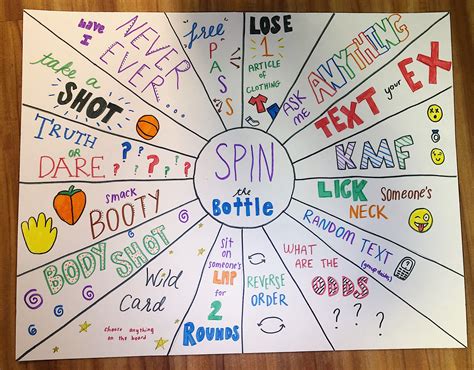 SPIN
the
Bottle
LOSE
1
ARTICLE
OF
CLOTHING
ASK
ME
ANYTHING
TEXT your EX
KMF
LICK someone's
NECK
RANDOM TEXT
(group decides)
WHAT
ARE THE
ODDS
? ? ?
REVERSE
ORDER
sit
on
someone's
LAP
for
2
ROUNDS
Wild
Card
choose anything
on the board
BODY SHOT
smack
BOOTY
TRUTH
OR
DARE ? ? ? ? ?
take a
SHOT
have
I
NEVER
EVER...
free
PASS